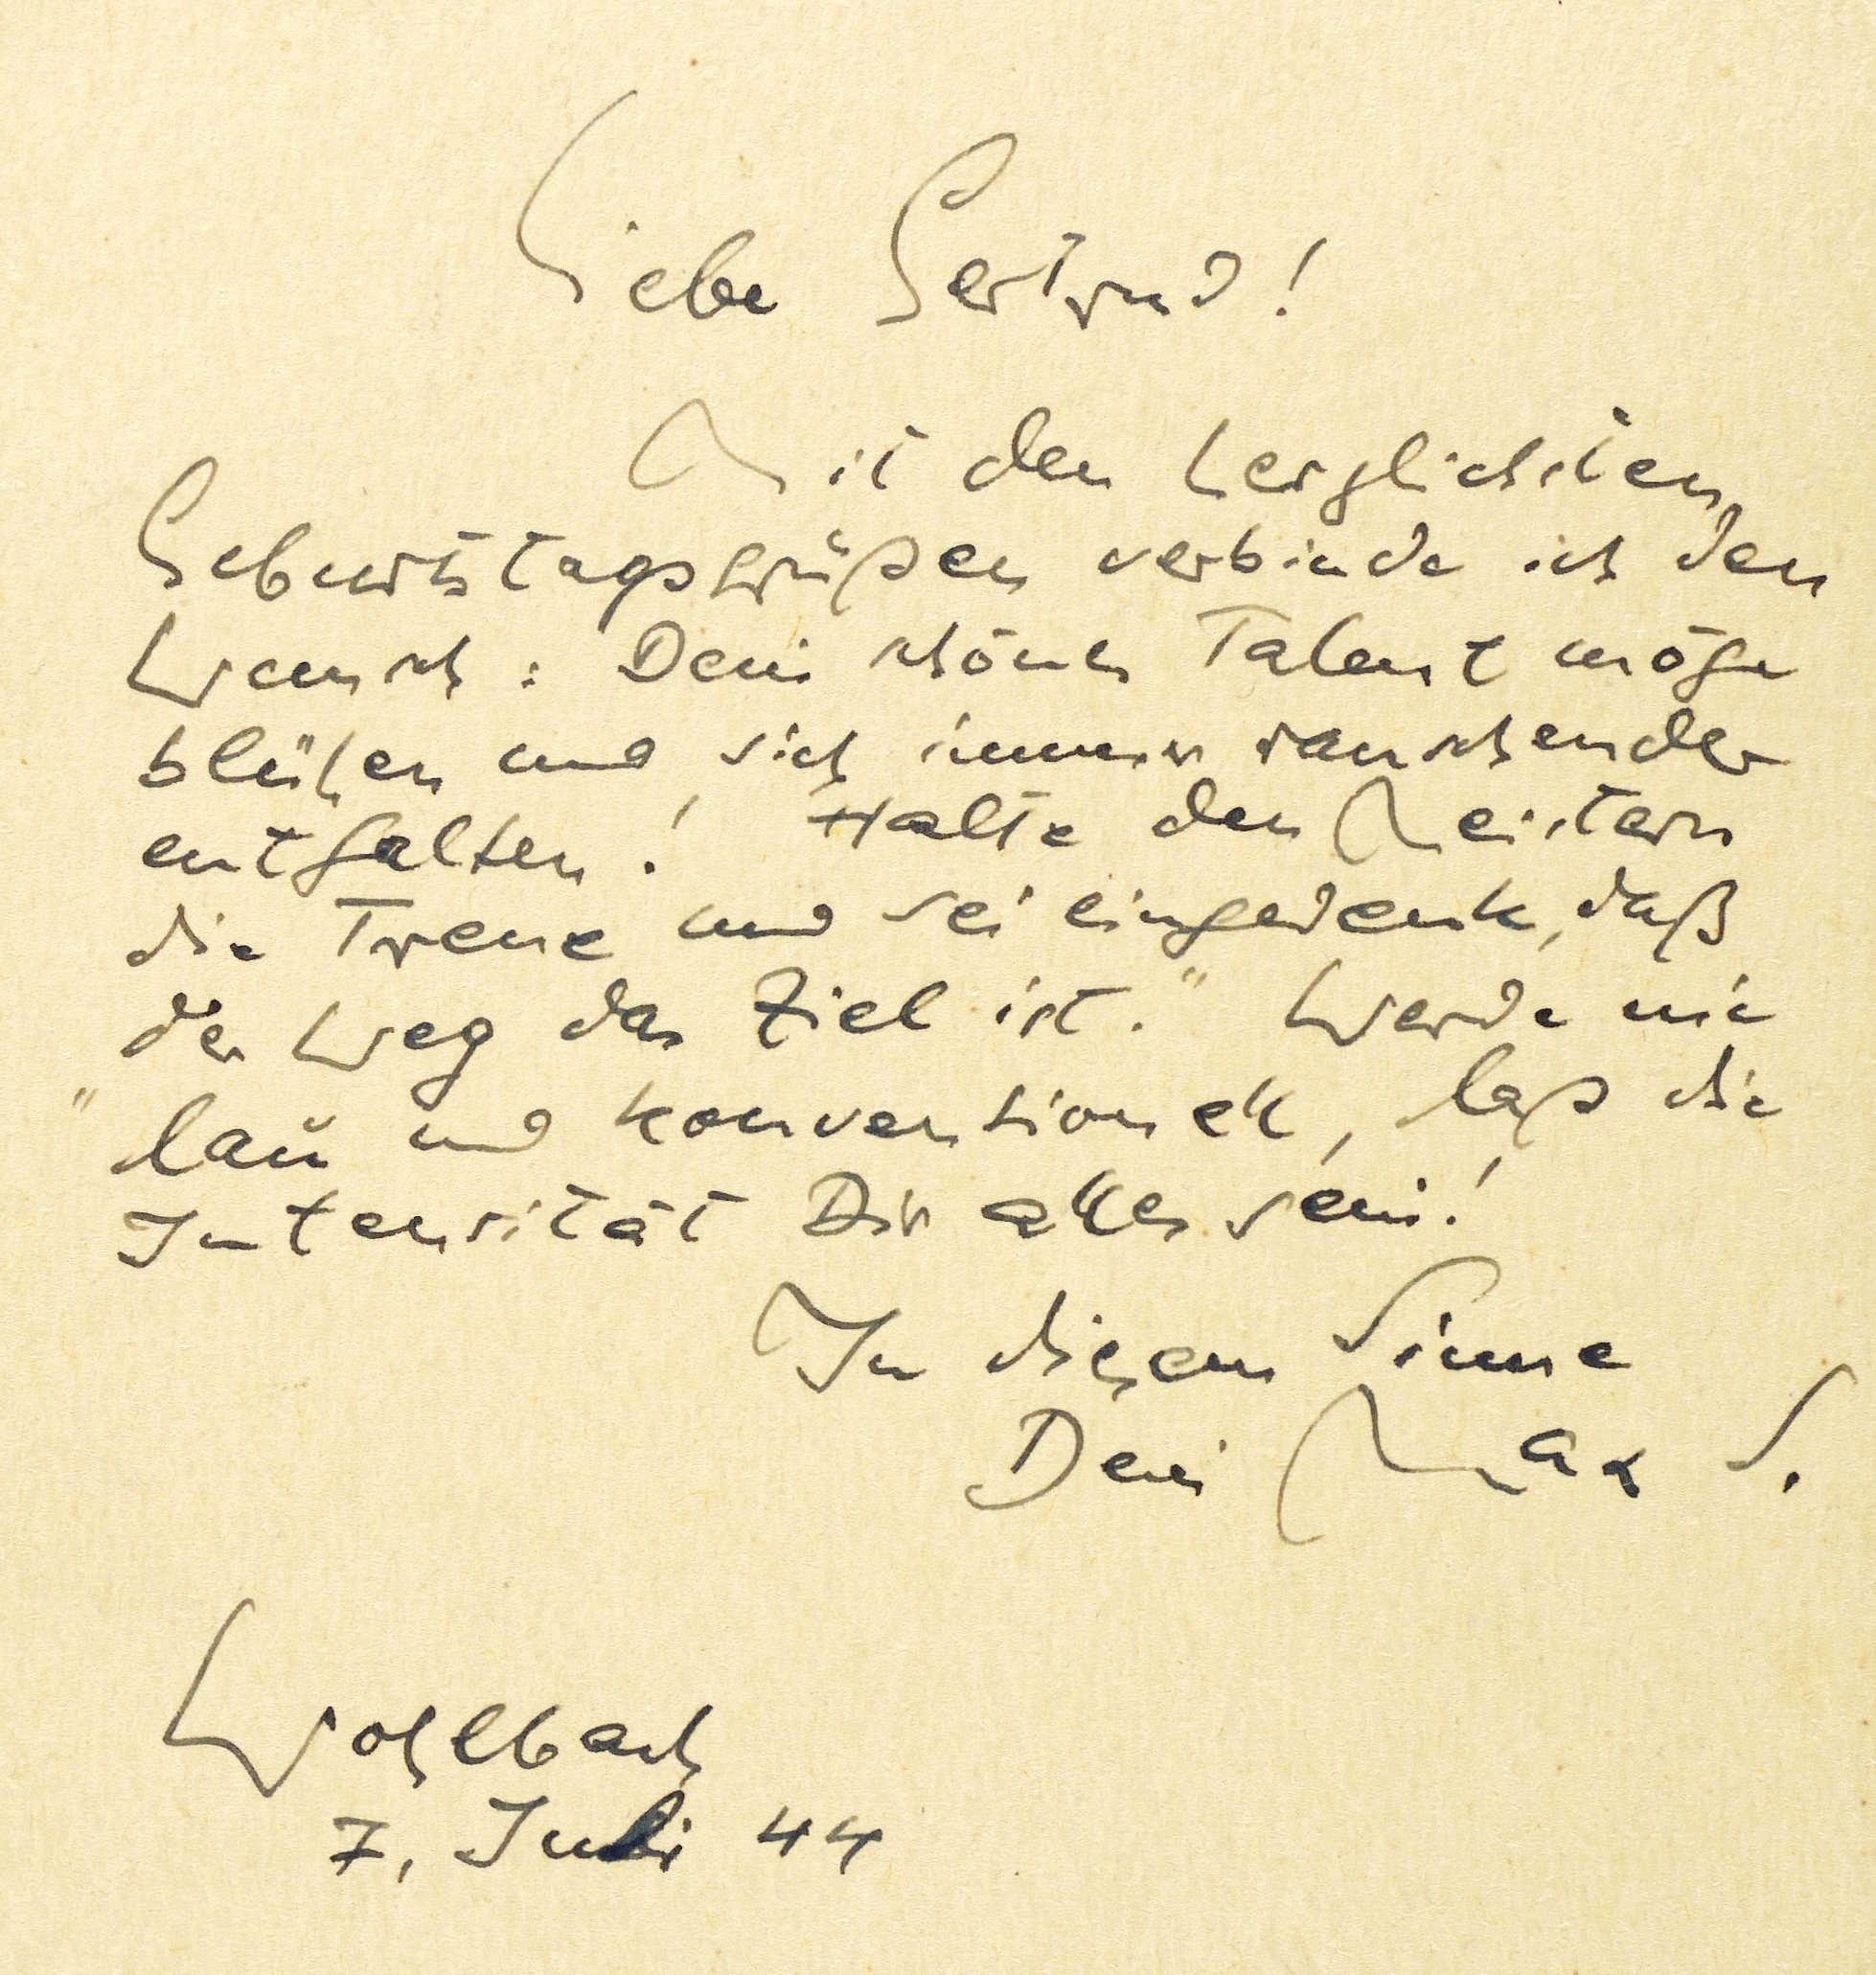 Liebe Gertrud!
Mit den herzlichsten
Geburtstagsgrüßen verbinde ich den
Wunsch: Dein schönes Talent möge
blühen und sich immer rauschender
entfalten! Halte den Meistern
die Treue und sei eingedenk, daß
der Weg das Ziel ist." Werde nie
"lau und konventionell, laß die
Intensität Dir alles sein!
In diesem Sinne
Dein Max S.
Wohlbach
7. Juli 44